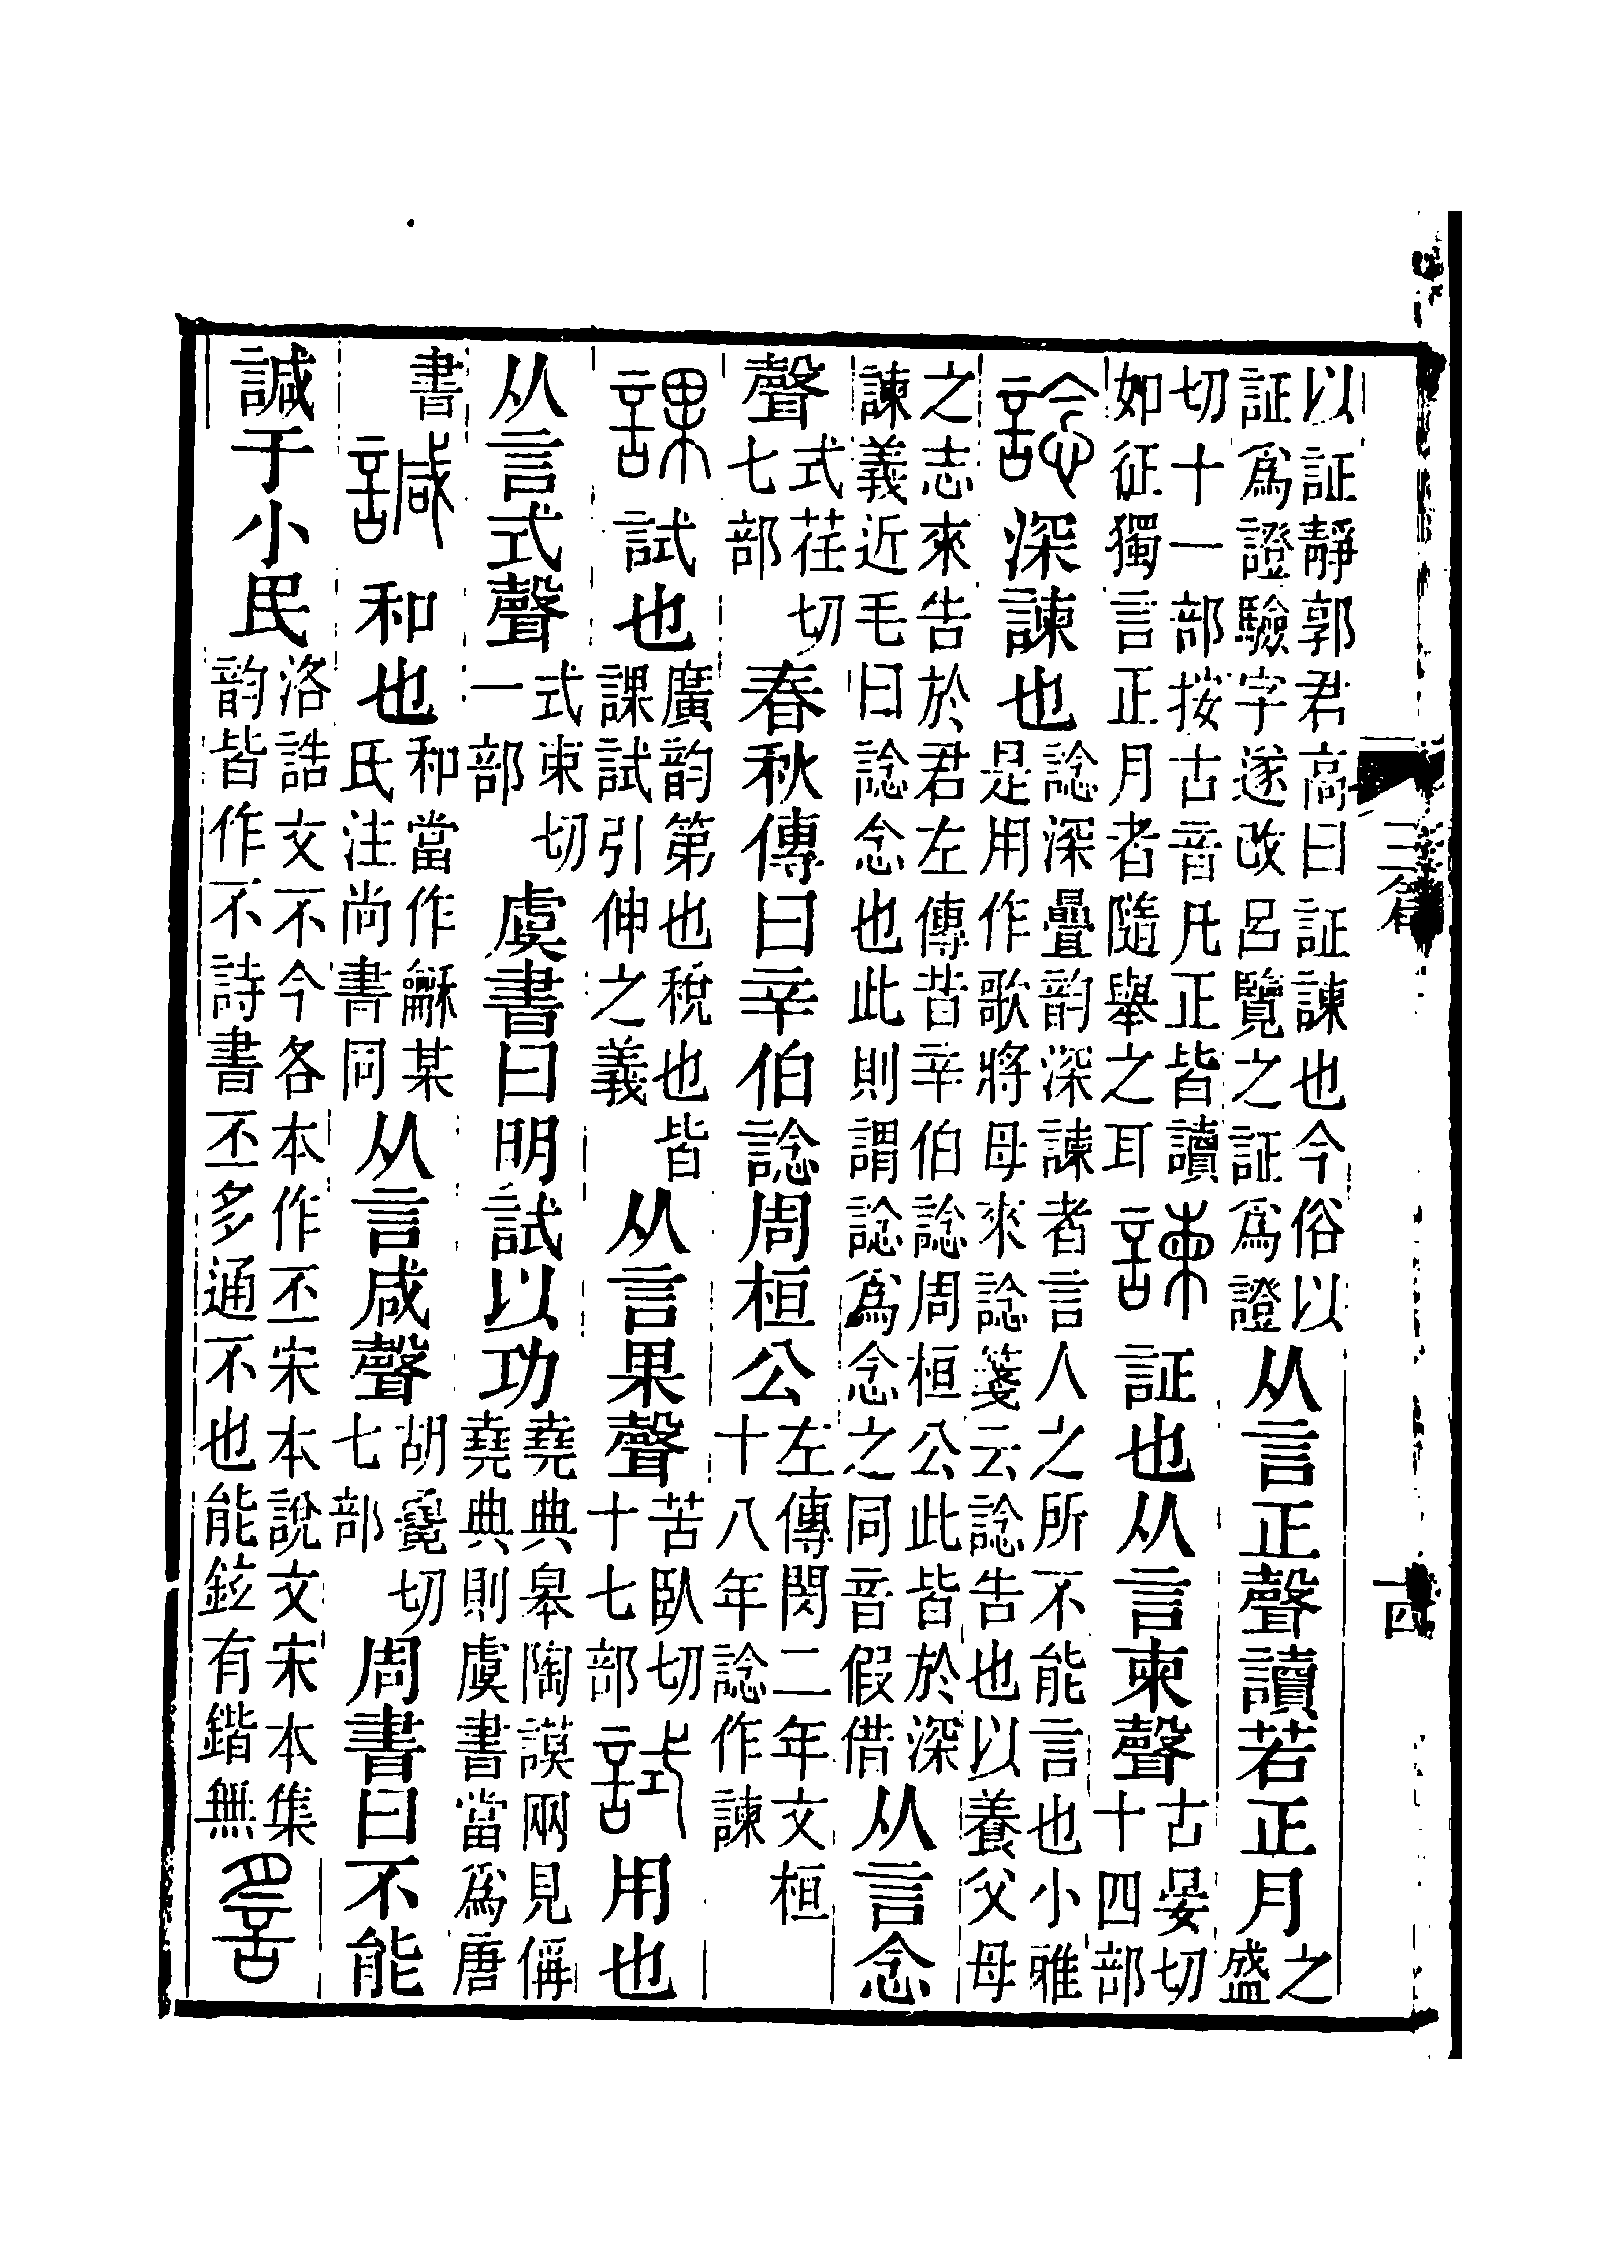 三篇
十四
以証靜郭君高曰証諫也今俗以証爲證驗字遂改呂覽之証爲證从言正聲讀若正月之盛
切十一部按古音凡正皆讀如征獨言正月者隨舉之耳諫証也从言柬聲古晏切十四部
諗深諫也諗深曡韵深諫者言人之所不能言也小雅是用作歌將母來諗箋云諗告也以養父母
之志來告於君左傳昔辛伯諗周桓公此皆於深諫義近毛曰諗念也此則謂諗爲念之同音假借从言念
聲式荏切七部春秋傳曰辛伯諗周桓公左傳閔二年文桓十八年諗作諫
課試也廣韵第也稅也皆課試引伸之義从言果聲苦臥切十七部試用也
从言式聲式束切一部虞書曰明試以功堯典臯陶謨兩見偁堯典則虞書當爲唐
書諴和也和當作龢某氏注尚書同从言咸聲胡毚切七部周書曰不能
諴于小民洛誥文不今各本作丕宋本說文宋本集韵皆作不詩書丕多通不也能鉉有鍇無䚻